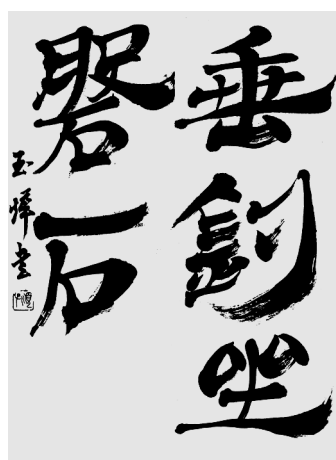 垂釣坐
磐石
玉 書